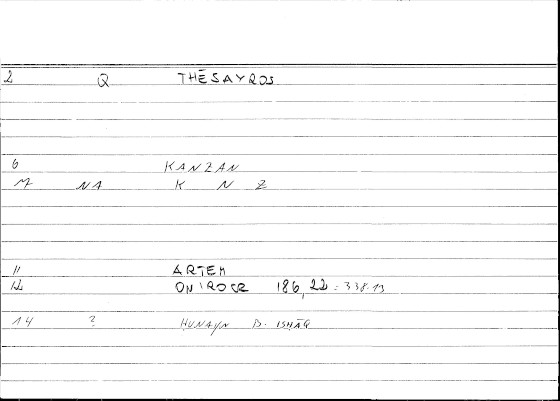 2 Q THĒSAYROS
6 KANZAN
M NA K N Z
11 ARTEM
12 ONIROCR 186,22 : 338.13
14 ? ḤUNAYN B. ISḤĀQ